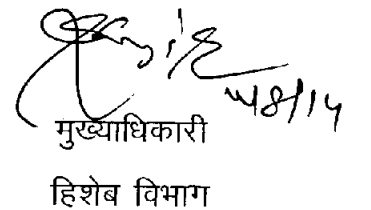 मुख्याधिकारी
हिशेब विभाग